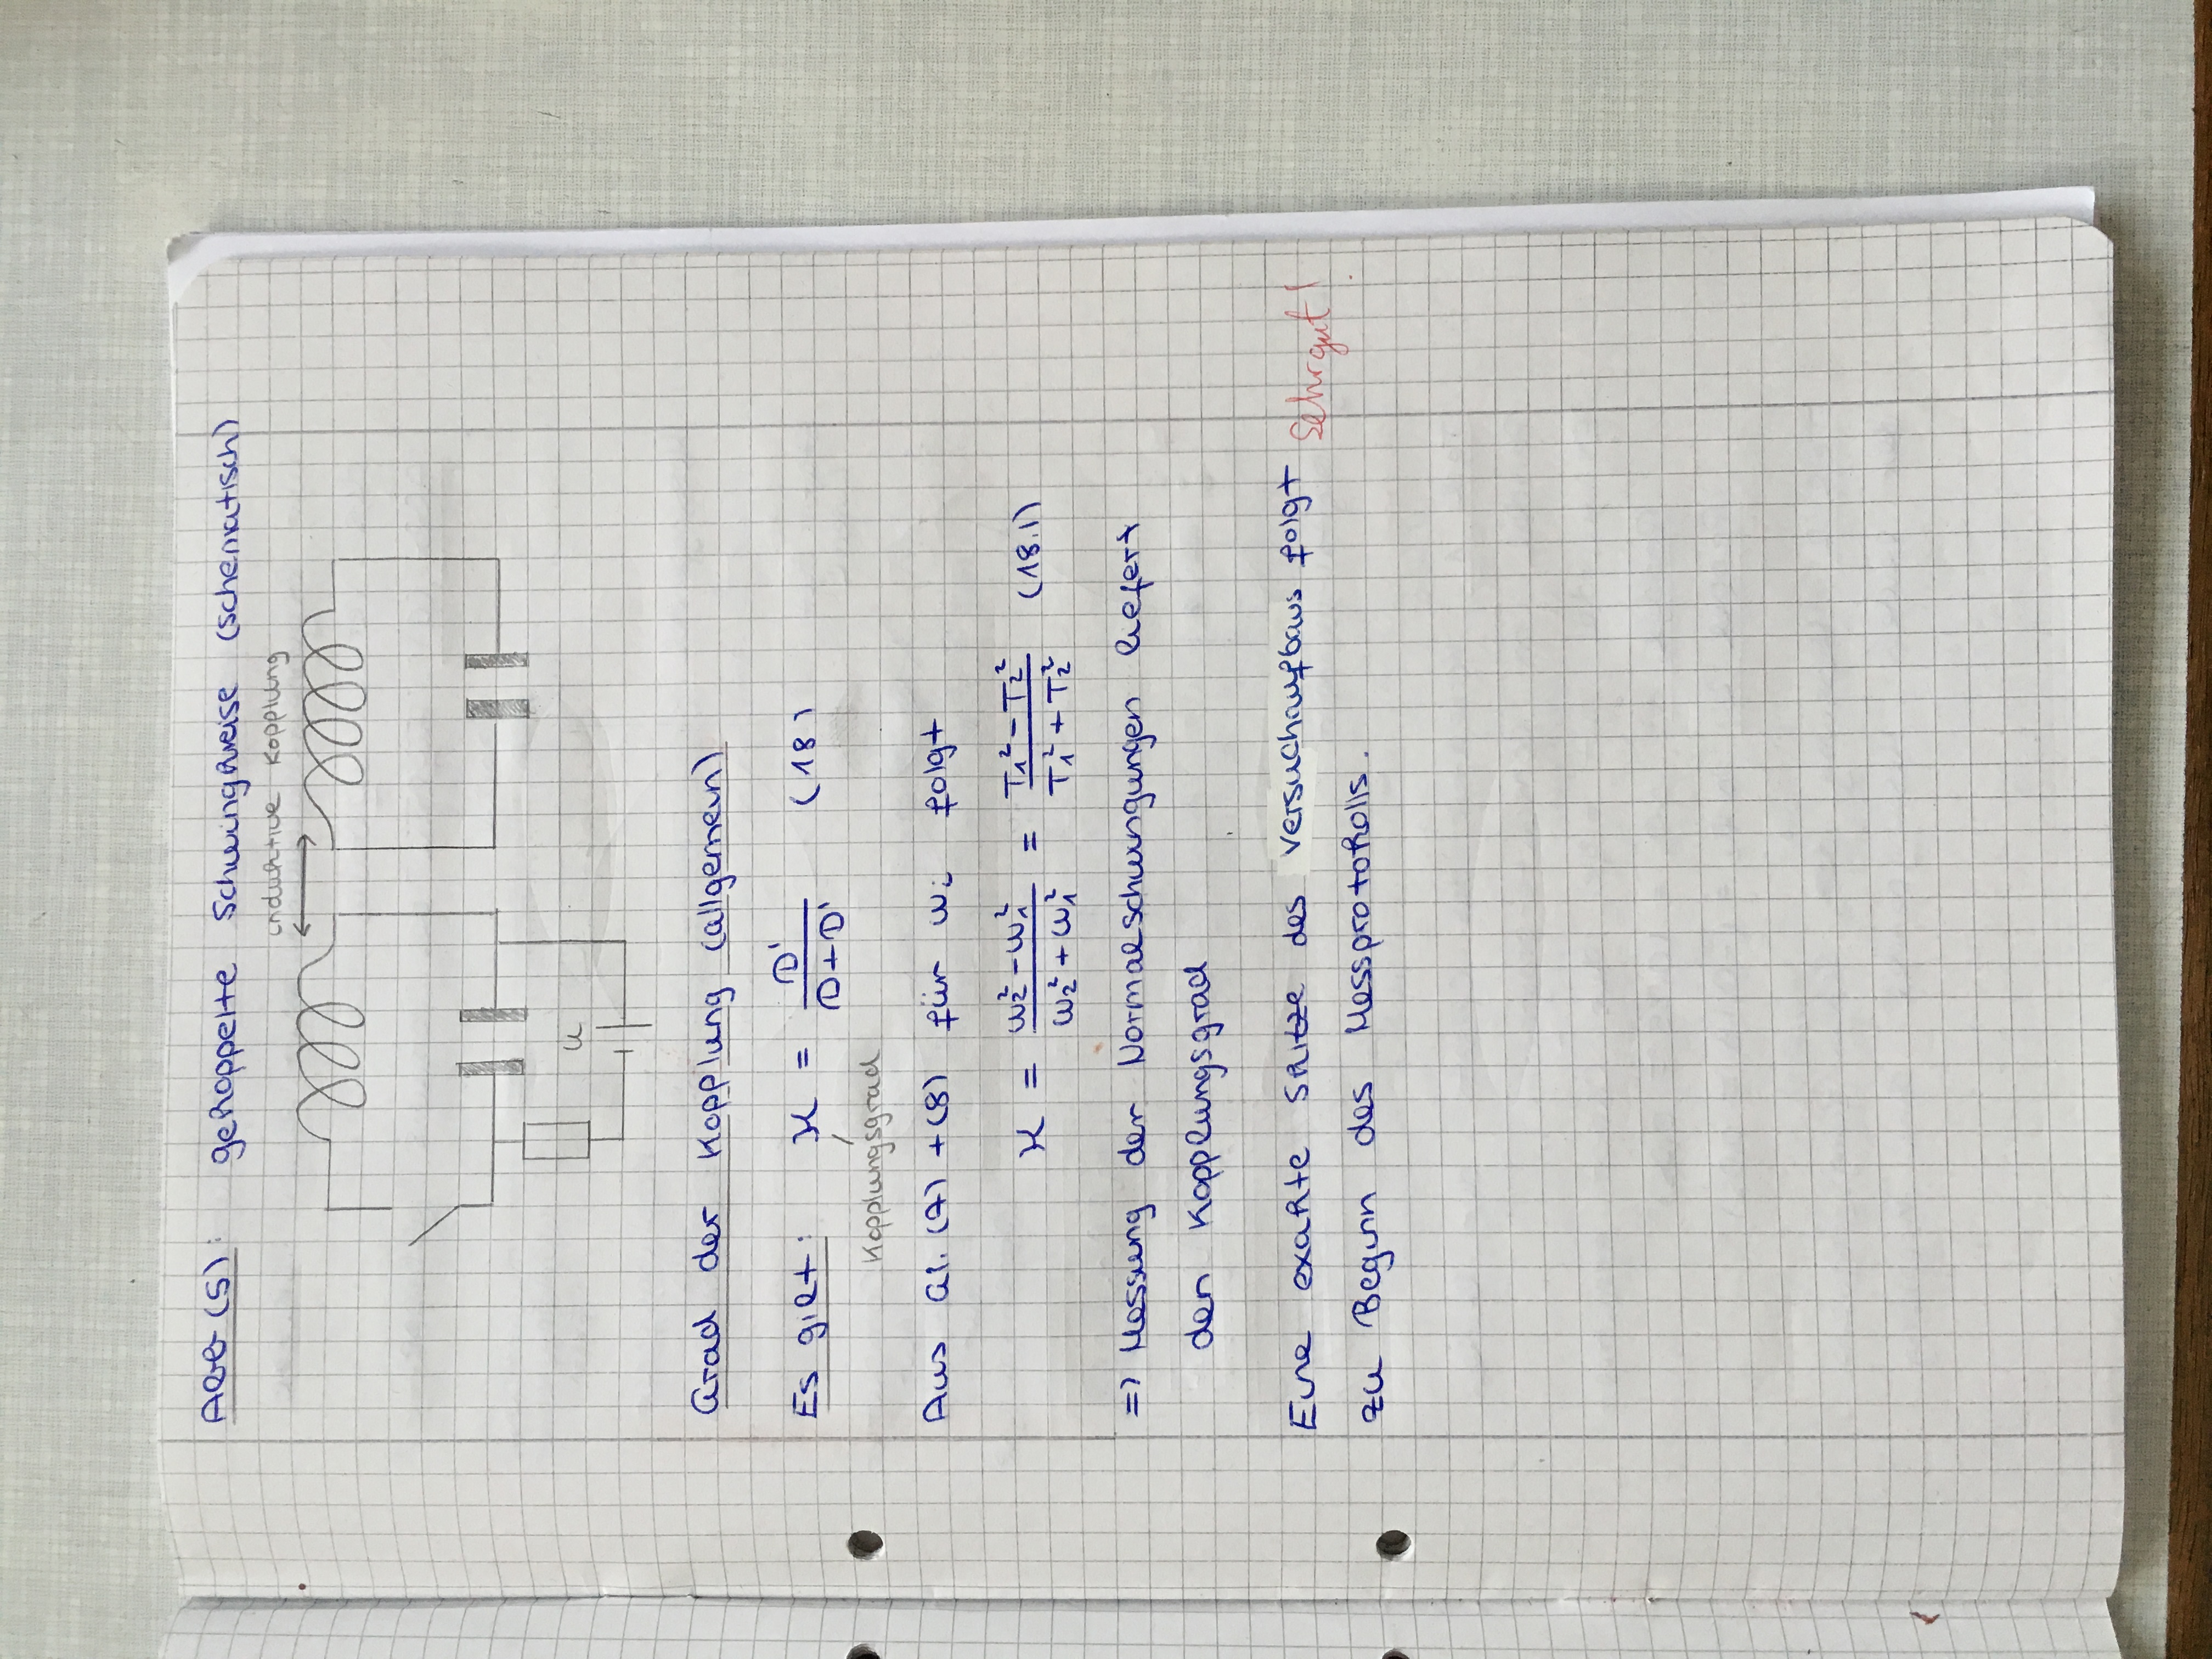 Abb (5): gekoppelte Schwingkreise (schematisch)
induktive Kopplung
U
Grad der Kopplung (allgemein)
Es gilt: ϰ = D' / (D + D') (18)
Kopplungsgrad
Aus Gl. (7) + (8) für ωi folgt
ϰ = (ω₂² - ω₁²) / (ω₂² + ω₁²) = (T₁² - T₂²) / (T₁² + T₂²) (18.1)
=> Messung der Normalschwingungen liefert
den Kopplungsgrad
Eine exakte Skizze des Versuchaufbaus folgt Sehr gut!
zu Beginn des Messprotokolls.